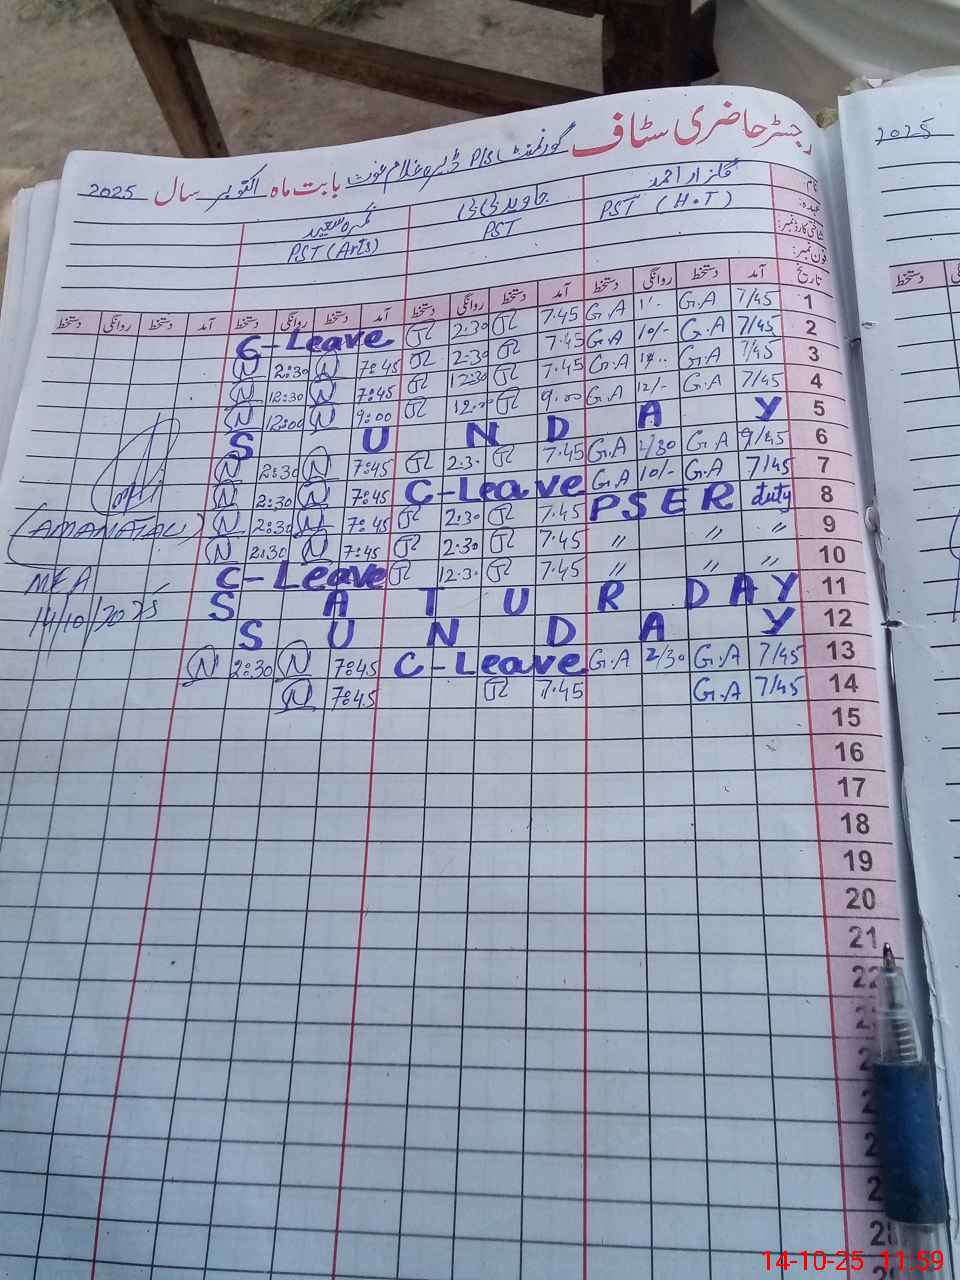 رجسٹر حاضری سٹاف گورنمنٹ P/S ڈیرہ غلام غوث بابت ماہ اکتوبر سال 2025
2025
نام گلزار احمد
عہدہ: PST (H.T) PST PST (Arts)
شناختی کارڈ نمبر:
فون نمبر:
تاریخ آمد دستخط روانگی دستخط آمد دستخط روانگی دستخط آمد دستخط روانگی دستخط آمد دستخط روانگی دستخط
1 7/45 G.A G.A 7.45 2:30 C-Leave
2 7/45 G.A 10/- G.A 7.45 2:30 7:45 N 2:30 N
3 7/45 G.A G.A 7.45 12:30 7:45 N 12:30 N
4 7/45 G.A 12/- G.A 9.00 12.00 9:00 N 12:00 N
5 S U N D A Y
6 G.A G.A 7.45 2.3. 7:45 N 2:30 N
7 7/45 G.A 10/- G.A C-Leave 7:45 N 2:30 N
8 PSER duty 7.45 2:30 7:45 N 2:30 N
9 " " " 7.45 2:30 7:45 N 2:30 N
10 " " " 7.45 12.3. C-Leave
11 S A T U R D A Y
12 S U N D A Y
13 7/45 G.A 2/30 G.A C-Leave 7:45 N 2:30 N
14 7/45 G.A 7.45 7:45 N
(AMANATALI)
MEA
14/10/2025
15
16
17
18
19
20
21
22
14-10-25 11:59